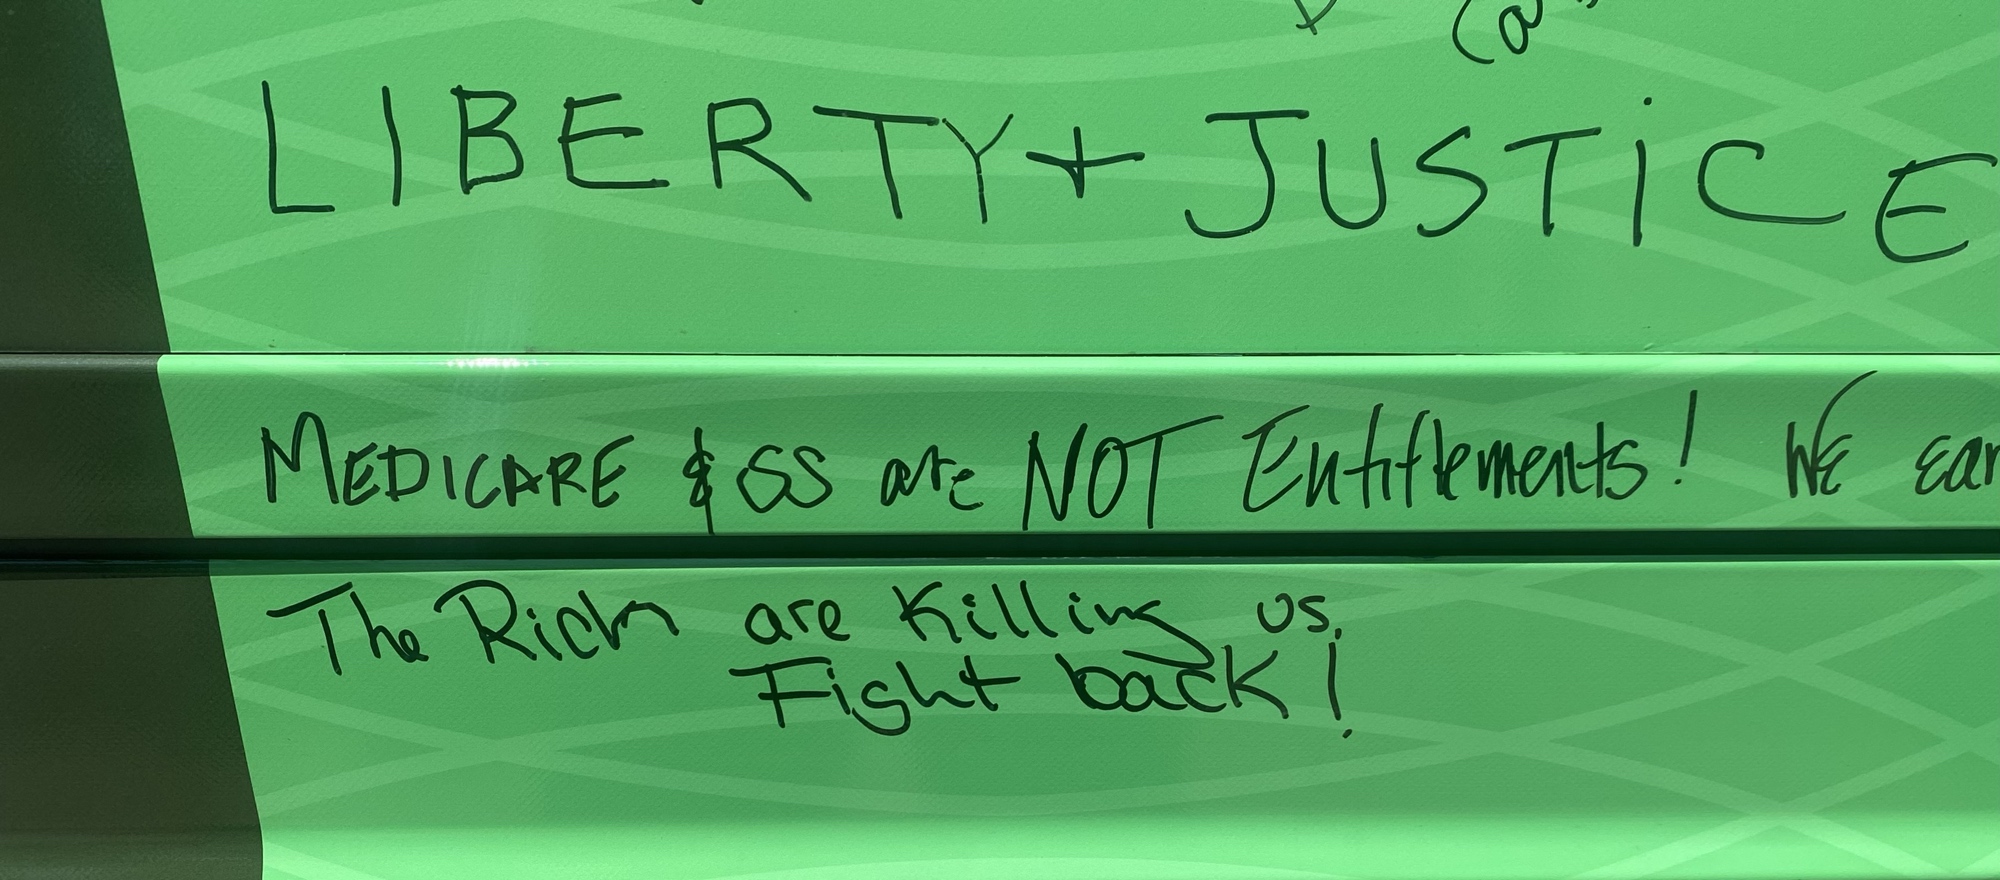 LIBERTY + JUSTICE
MEDICARE & SS are NOT Entitlements! WE ear
The Rich are Killing us.
Fight back!